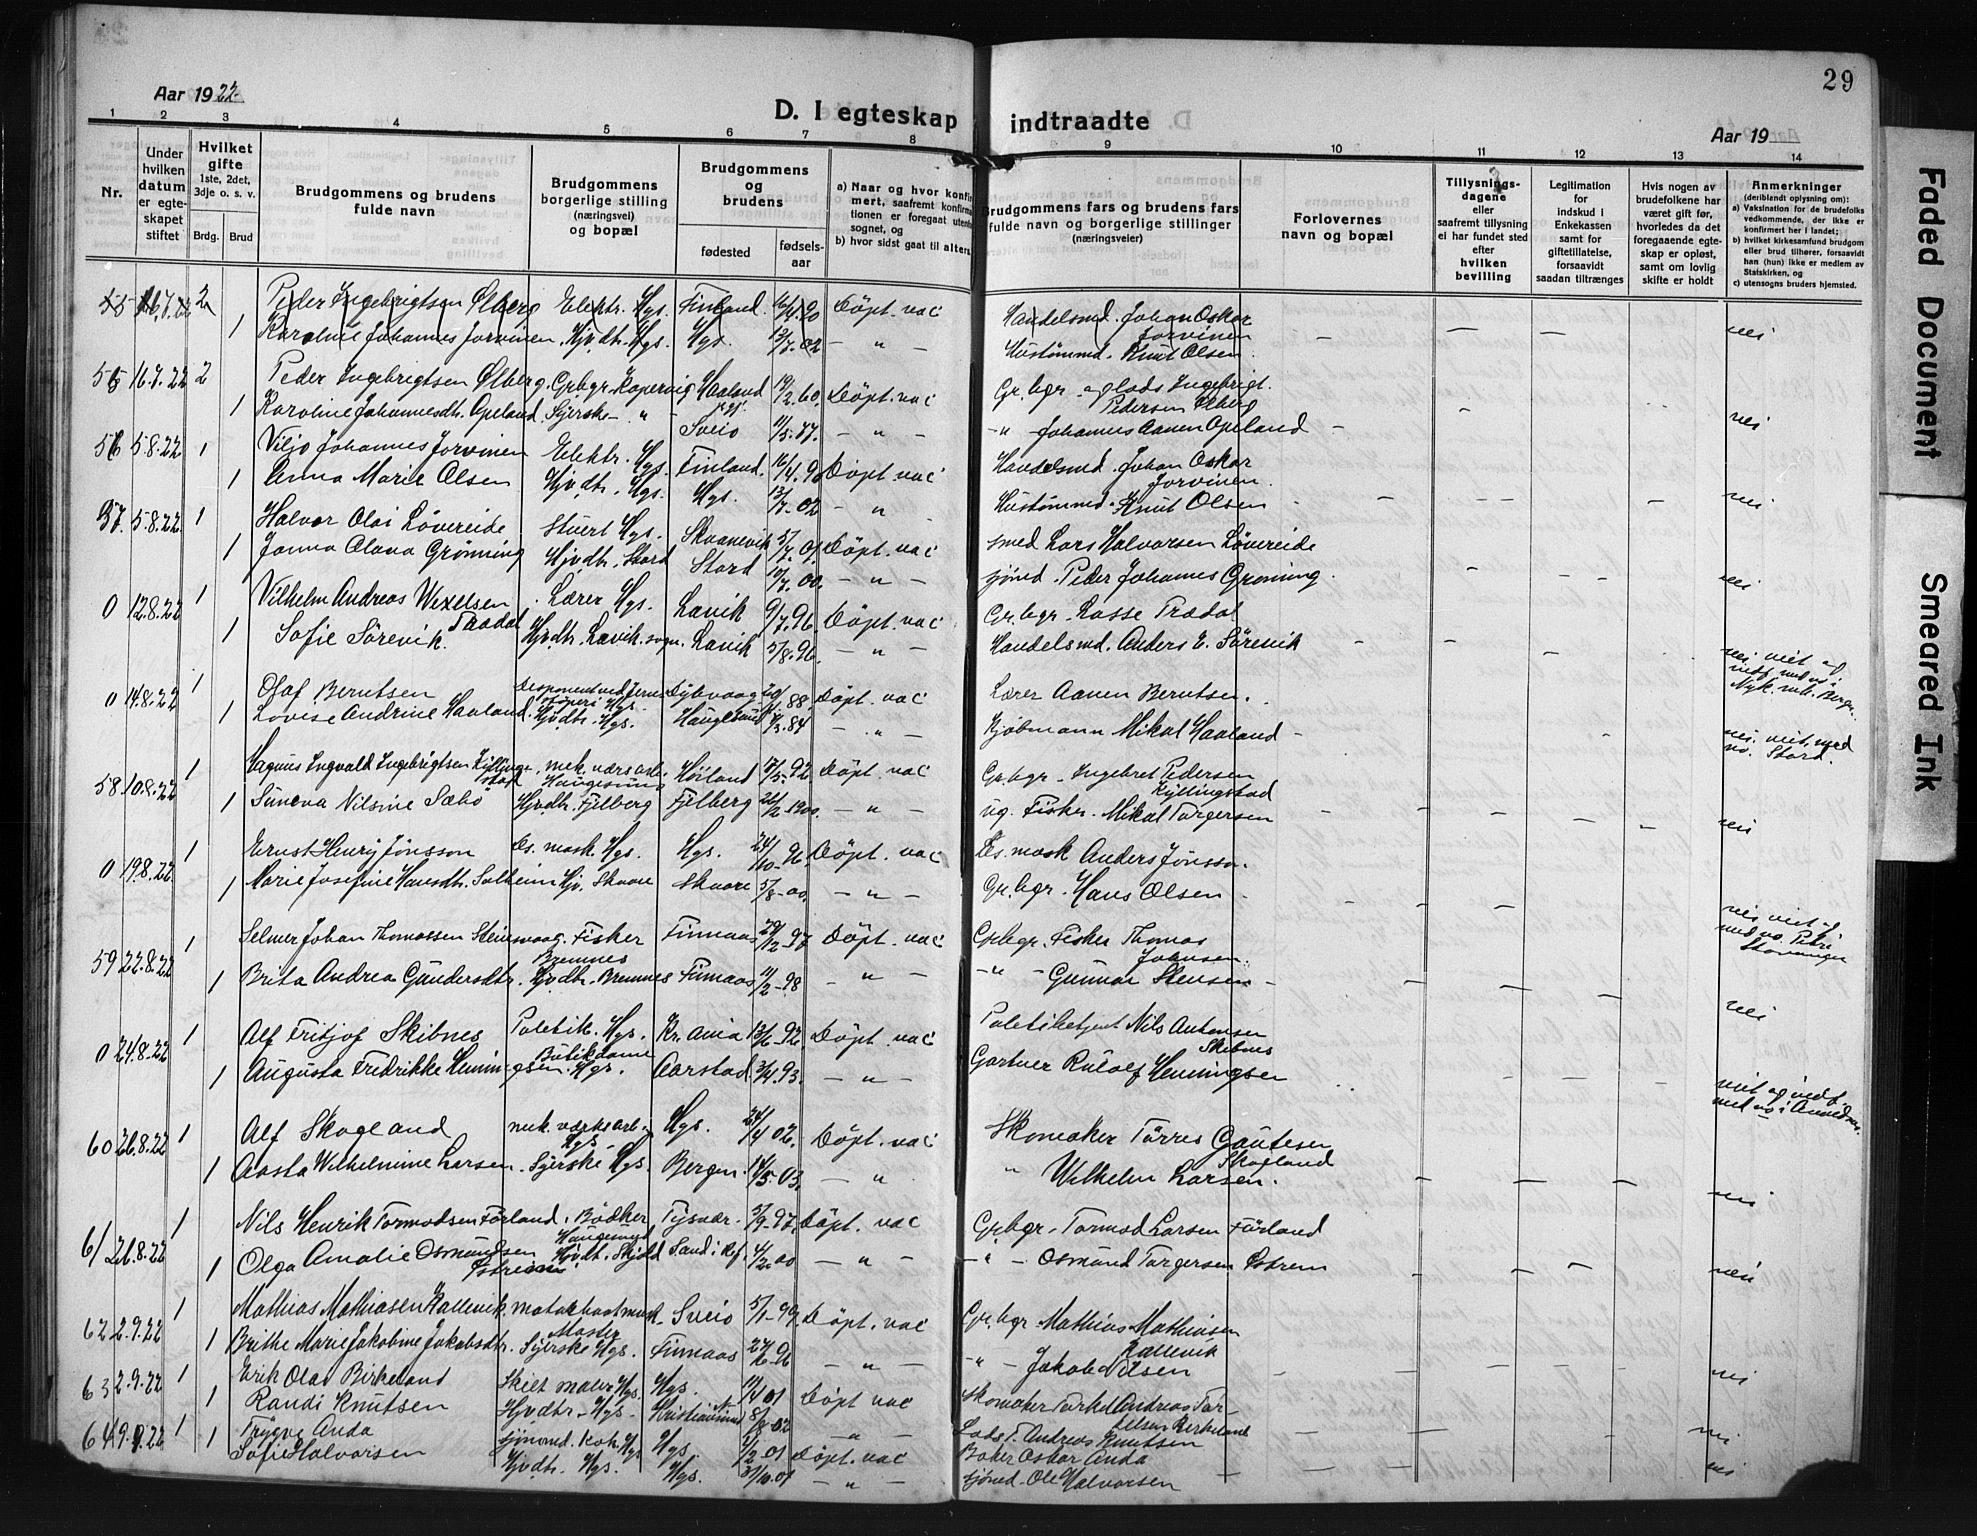 Aar 1922
29
D. I egteskap indtraadte
Aar 19
1 2 3 4 5 6 7 8 9 10 11 12 13 14
Nr.
Under hvilken datum er egteskapet stiftet
Hvilket gifte 1ste, 2det, 3dje o. s. v.
Brdg. Brud
Brudgommens og brudens fulde navn
Brudgommens borgerlige stilling (næringsvei) og bopæl
Brudgommens og brudens
fødested fødsels-aar
a) Naar og hvor konfirmert, saafremt konfirmationen er foregaat utenfor sognet, og
b) hvor sidst gaat til alters
Brudgommens fars og brudens fars fulde navn og borgerlige stillinger (næringsveier)
Forlovernes navn og bopæl
Tillysnings-dagene eller saafremt tillysning ei har fundet sted efter hvilken bevilling
Legitimation for indskud i Enkekassen samt for giftetillatelse, forsaavidt saadan tiltrænges
Hvis nogen av brudefolkene har været gift før, hvorledes da det foregaaende egteskap er opløst, samt om lovlig skifte er holdt
Anmerkninger (deriblandt oplysning om):
a) Vaksination for de brudefolks vedkommende, der ikke er konfirmert her i landet;
b) hvilket kirkesamfund brudgom eller brud tilhører, forsaavidt han (hun) ikke er medlem av Statskirken, og
c) utensogns bruders hjemsted.
Peder Ingebrigtsen Ølberg Elektr. Hgs. Finland. Døpt. vac Handelsmd. Johan Oskar Jorvinen
1 Karoline Johannes Jorvinen. Hjvdtr. Hgs. Hgs. 13/7-02 - " - Hustømmd. Knut Olsen nei
16.7.22 2 Peder Ingebrigtsen Ølberg. Grbgr. Kopervig Haaland 19/2.60. Døpt. vac Gr.bgr - Ingebrigt Pedersen Ølberg
1 Karoline Johannesdtr. Opeland. Syerske - " - Sveio 11/5.77. - " - - " - Johannes Aanen Opeland nei
56 5.8.22 1 Viljo Johannes Jorvinen Elektr. Hgs. Finland. Døpt. vac Handelsmd. Johan Oskar Jorvinen.
1 Anna Marie Olsen Hjvdtr. Hgs. Hgs. 13/7-02 - " - Hustømmd. Knut Olsen nei
57. 5.8.22 1 Halvor Olai Løvereide Stuert Hgs. Skaanevik 5/7.01. Døpt. vac smed Lars Halvorsen Løvereide
1 Janna Olava Grønning Hjvdtr. Stord Stord 10/7.00. - " - sjømd. Peder Johannes Grønning. nei
0 12.8.22 1 Vilhelm Andreas Wexelsen Trædal Lærer Hgs. Lavik 9/7.96. Døpt. vac Gr.bgr. Lasse Trædal
1 Sofie Sørevik. Hjvdtr. Lavik. sogn. Lavik 5/8.96. - " - Handelsmd. Anders E. Sørevik nei. viet og
0 14.8.22 1 Olaf Berntsen Hgs. 88. Døpt. vac Lærer Aanen Berntsen.
1 Lovise Andrine Haaland. Hjvdtr. Hgs. Haugesund 84 - " - Kjøbmann Mikal Haaland nei. viet, med no. Stord.
58. 10.8.22 1 Magnus Ingvald Ingebrigtsen Killingstad. mek. verksarb. Haugesund Høiland 17/5.92 Døpt. vac Gr.bgr - Ingebret Pedersen Kyllingstad
1 Suneva Nilsine Sæbø Hjvdtr. Fjelberg Fjelberg 1900. - " - ug. Fisker. Mikal Torgersen nei
0 19.8.22 1 Ernst Henry Jönsson Ds. mask. Hgs. Hgs. 24/10-96. Døpt. vac Ds. mask Anders Jönsson.
1 Marie Josefine Hansdtr. Solheim Hjv. Skaare Skaare 5/8-00. - " - Gr.bgr. Hans Olsen nei viet og
59 22.8.22 1 Selmer Johan Thomassen Steinsvaag. Fisker Bremnes Finnaas 29/12-97 Døpt. vac Gr.bgr. Fisker Thomas Johnsen.
1 Brita Andrea Gundersdtr. Hjvdtr. Bremnes Finnaas 11/2-98 - " - - " - Gunnar Stensen nei
0 24.8.22 1 Alf Fritjof Skibnes Politik. Hgs. Kr.ania 13/6-92. Døpt. vac Politibetjent Nils Antonsen Skibnes
1 Augusta Fredrikke Henningsen. Butikdame Hgs. Aarstad. 3/4.93. - " - Gartner Rudolf Henningsen viet og indf. med no i
60 26.8.22 1 Alf Skogland mek. værksarb. Hgs. Hgs. 24/4 02. Døpt. vac Skomaker Tørres Gautesen Skogland
1 Aasta Wilhelmine Larsen. Syerske Hgs. Bergen. 14/5.03. - " " Wilhelm Larsen. nei
61 26.8.22 1 Nils Henrik Tormodsen Førland. Bødker Haugesund Tysvær. 3/9-97. Døpt. vac Gr.bgr. Tormod Larsen Førland
1 Olga Amalie Osmundsen Østrem Hjvdtr. Skjold Sand i Ryf. 4/2.00 - " - - " - Osmund Torgersen Østrem nei
62 2.9.22 1 Mathias Mathiasen Kallevik motorbaatmask. Moster Sveio 5/1-99. Døpt. vac Gr.bgr Mathias Mathiasen Kallevik
1 Brithe Marie Jakobine Jakobsdtr. Syerske Hgs. Finnaas - " - - " - Jakob Nilsen nei
63 2.9.22 1 Erik Olai Birkeland Skiltmaler Hgs. Hgs. 11/4 01 Døpt vac Skomaker Torkel Andreas Torkelsen Berkeland
1 Randi Knutsen Hjvdtr. Hgs. Kristiansund N 02 - " - Lods T. Andreas Knutsen nei
64 9.9.22 1 Trygve Anda sjømd. kok. Hgs Hgs. 01 Døpt. vac Baker Oskar Anda
1 Sofie Halvorsen Hjvdtr. Hgs. Hgs. 31/10.01 - " - sjømd. Ole Halvorsen nei
Faded Document
Smeared Ink